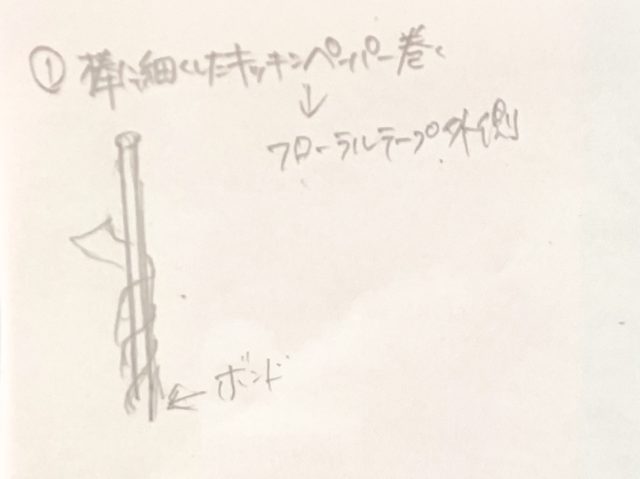 ① 棒に細くしたキッチンペーパー巻く
↓
フローラルテープ外側
← ボンド